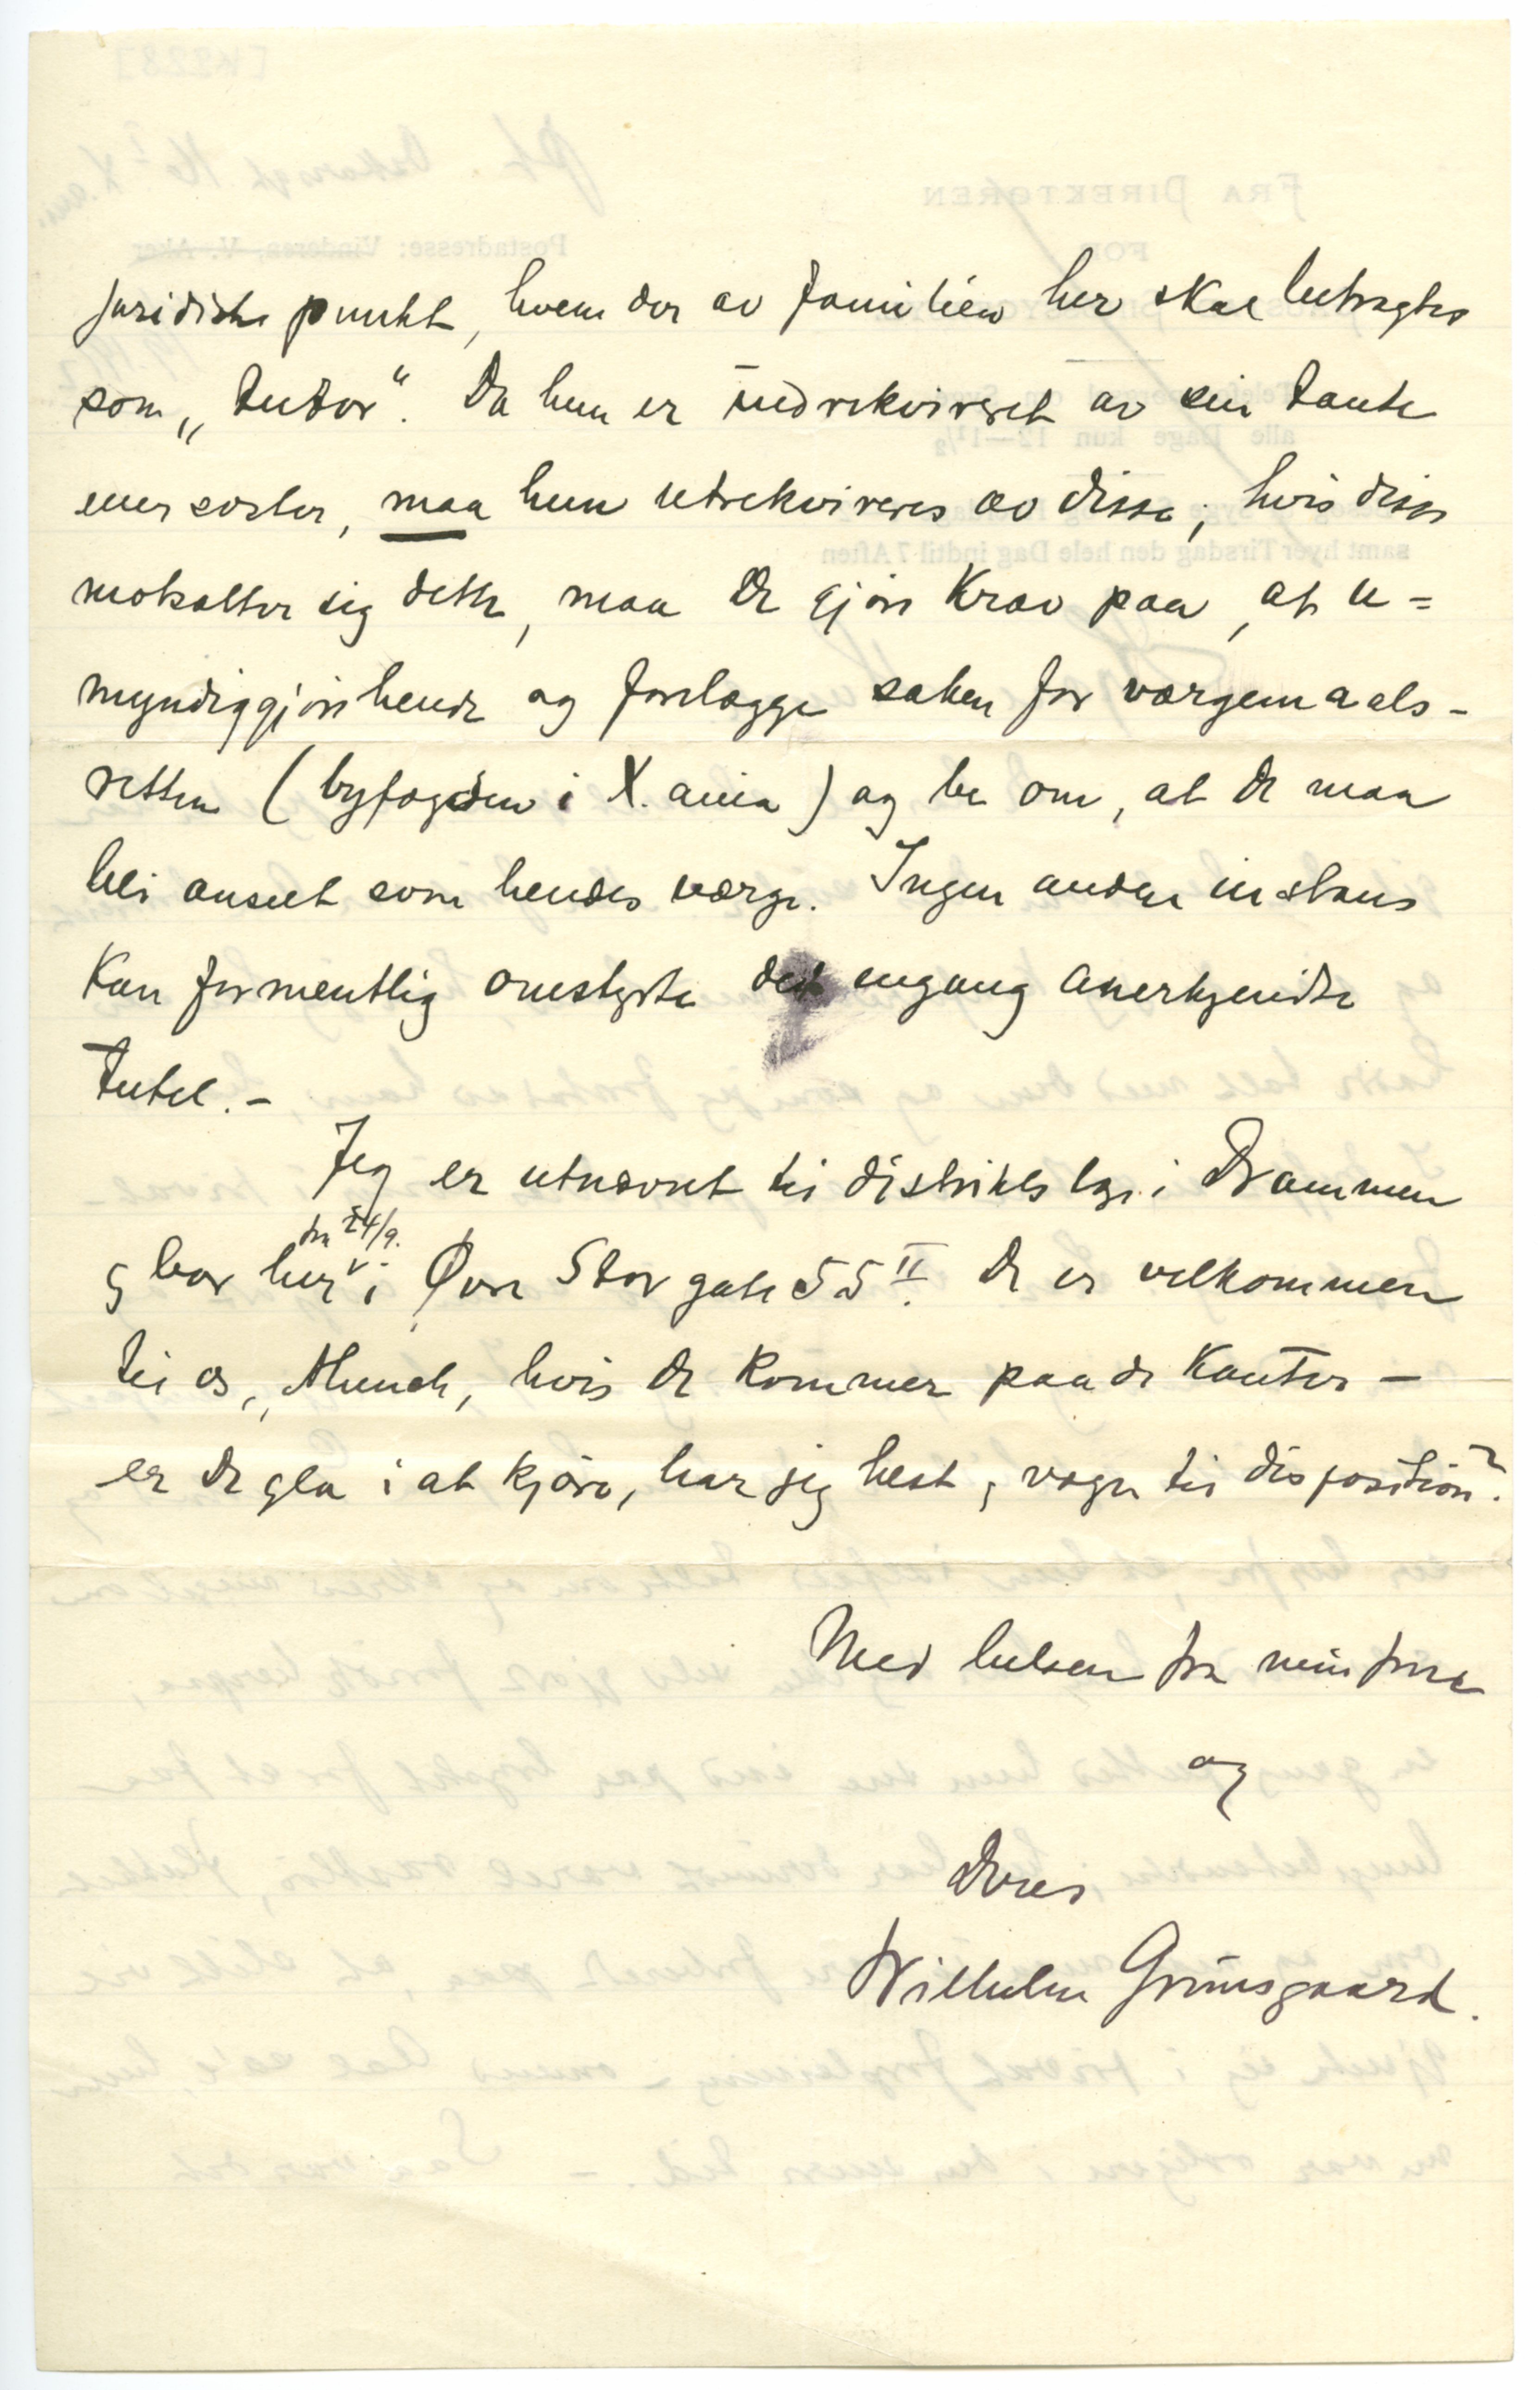 juridiske punkt, hvem der av familien her skal betragtes
som „tutor“. Da hun er indrekvireret av sin tante
eller søster, maa hun utrekvireres av disse; hvis disse
motsætter sig dette, maa De gjøre krav paa, at u=
myndiggjøre hende og forelægge saken for værgemaals-
retten (byfogden i X.ania) og be om, at De maa
bli anseet som hendes værge. Ingen anden instans
kan formentlig omstyrte det engang anerkjendte
Tutel. –
Jeg er utnævnt til distriktslæge i Drammen
fra 24/9.
& bor her i Øvre Storgate 55 II. De er velkommen
til os, Munch, hvis De kommer paa de kanter –
er De gla i at kjøre, har jeg hest & vogn til disposition?
Med hilsen fra min frue
og
Deres
Wilhelm Grimsgaard.